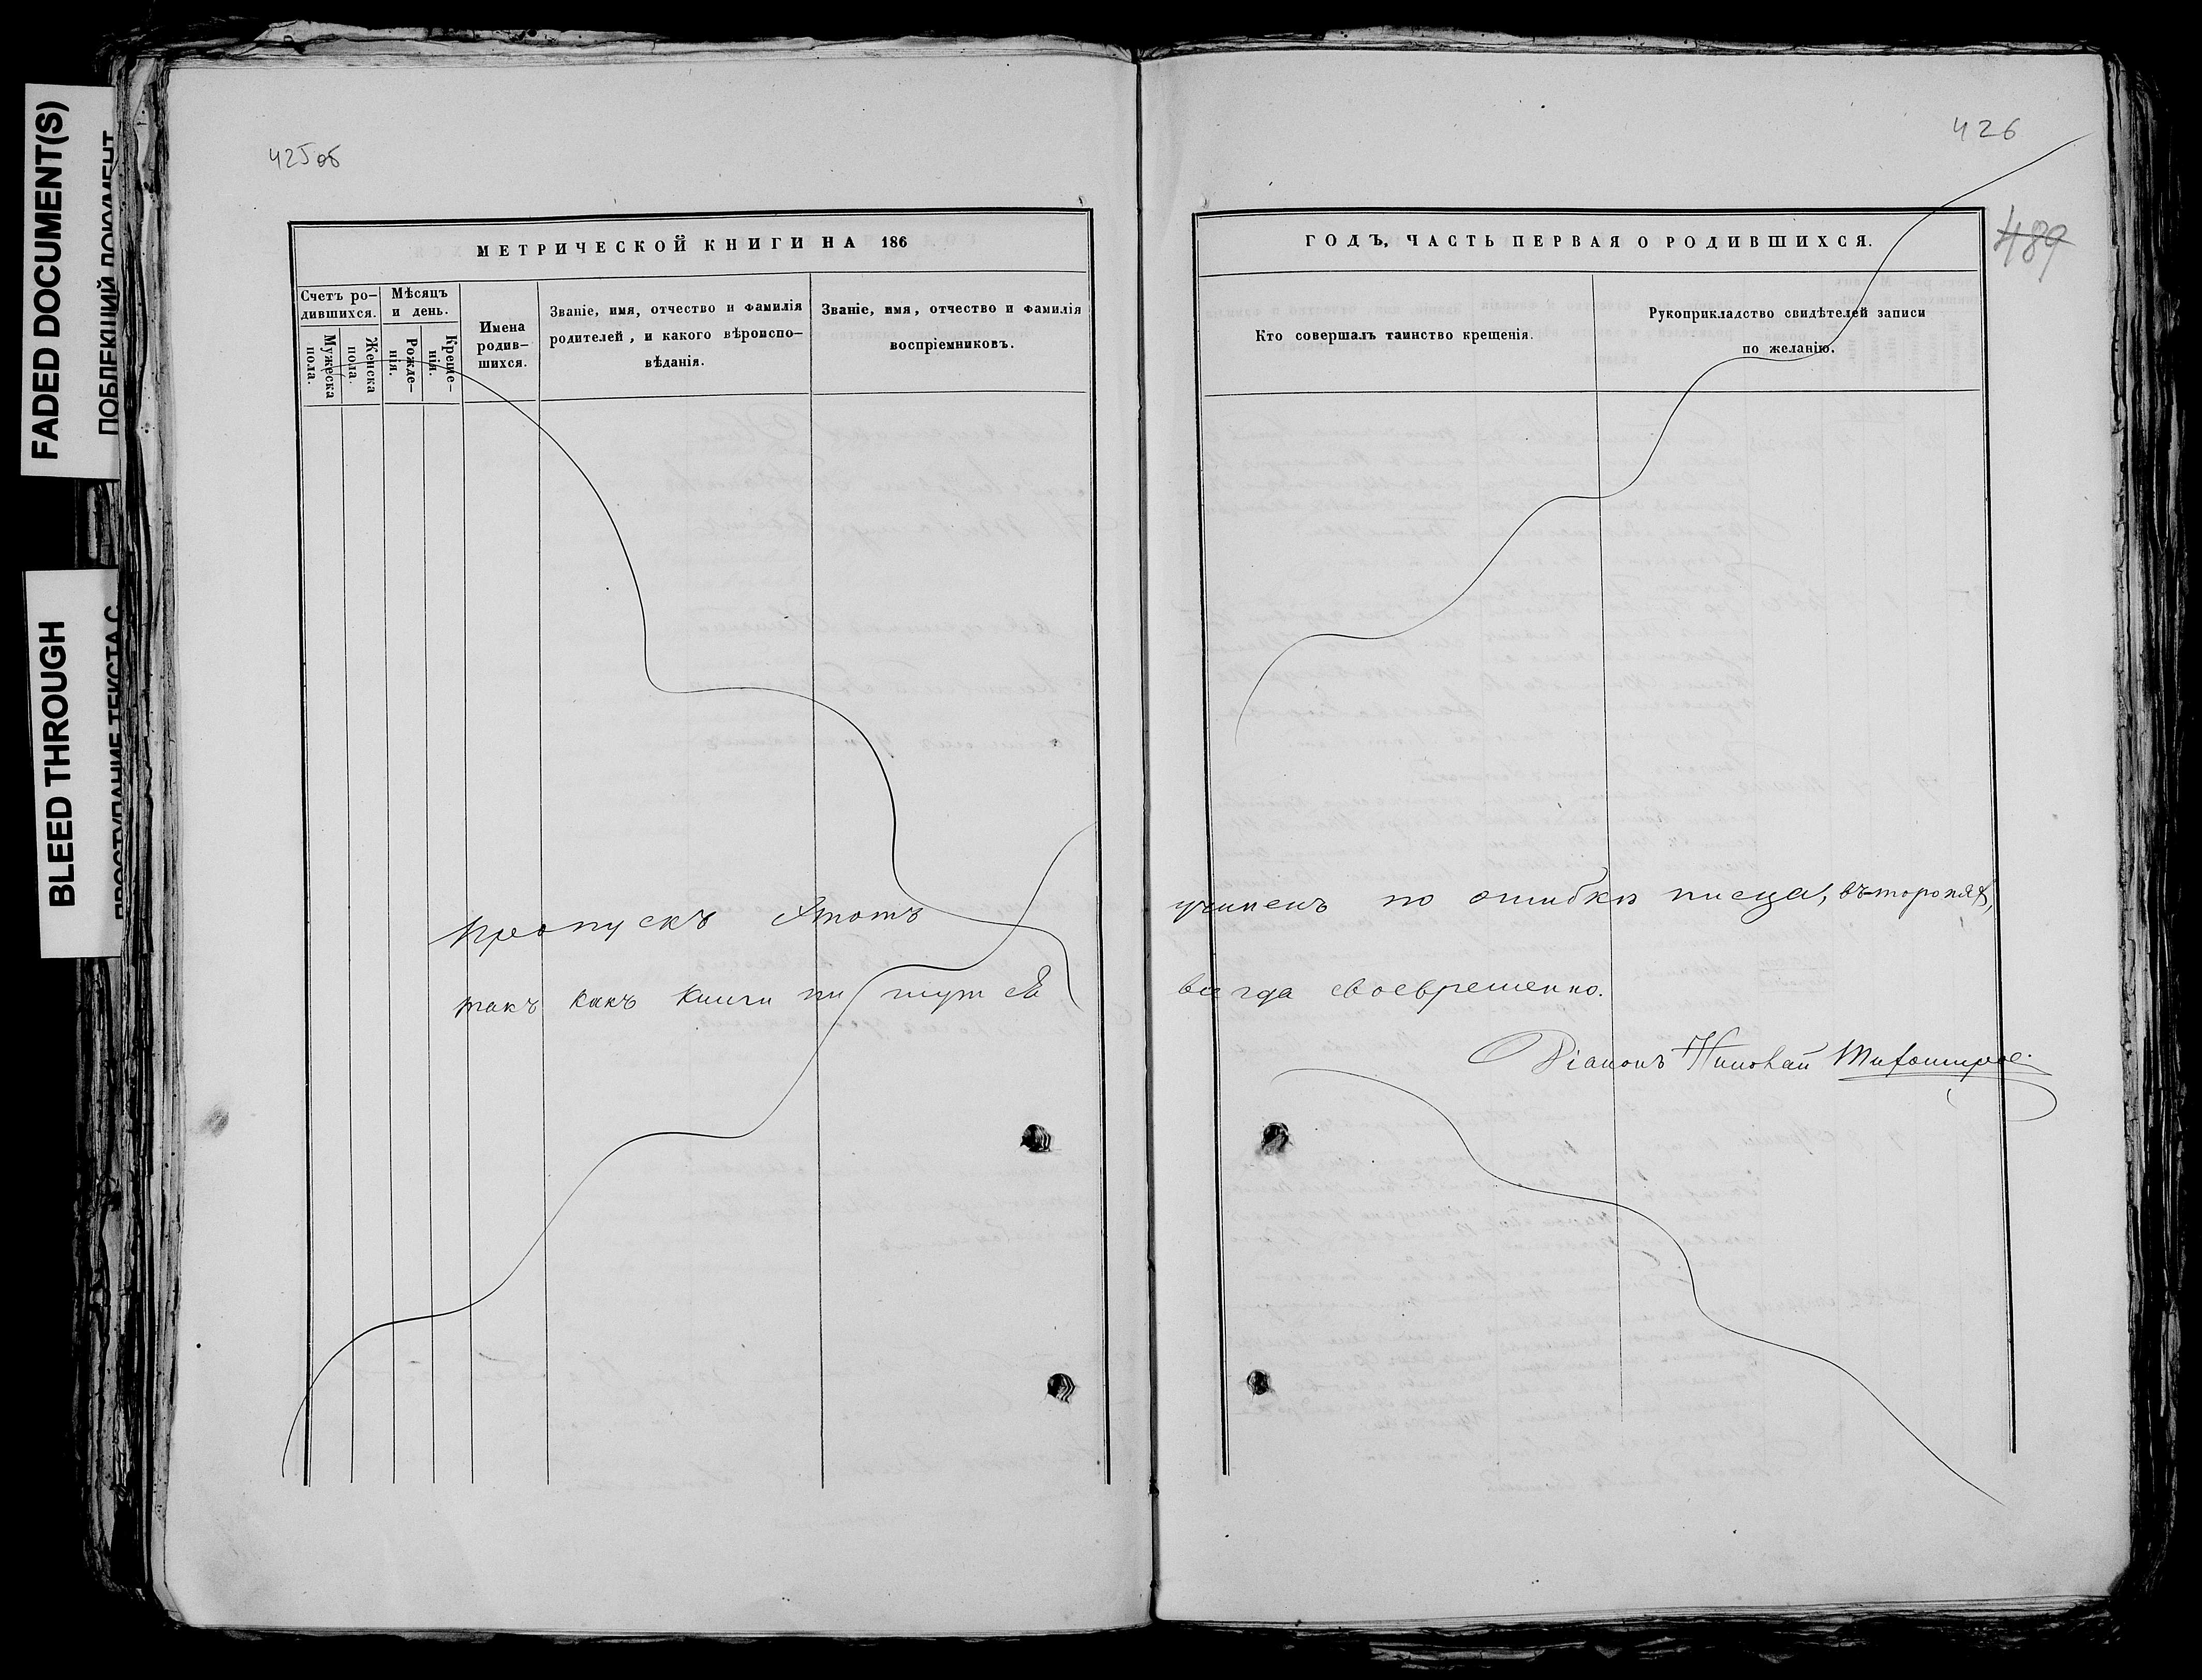 FADED DOCUMENT(S)
BLEED THROUGH
425об
МЕТРИЧЕСКОЙ КНИГИ НА 186
Счетъ ро-
дившихся.
Мужеска
пола.
Женска
пола.
Мѣсяцъ
и день.
Рожде-
нія.
Креще-
нія.
Имена
родив-
шихся.
Званіе, имя, отчество и фамилія
родителей, и какого вѣроиспо-
вѣданія.
Званіе, имя, отчество и фамилія
воспріемниковъ.
Пропускъ этотъ
такъ какъ книги пишутся
426
489
ГОДЪ, ЧАСТЬ ПЕРВАЯ О РОДИВШИХСЯ.
Кто совершалъ таинство крещенія.
Рукоприкладство свидѣтелей записи
по желанію.
учиненъ по ошибкѣ писца, въ-торопяхъ,
всегда своевременно.
Діаконъ Николай